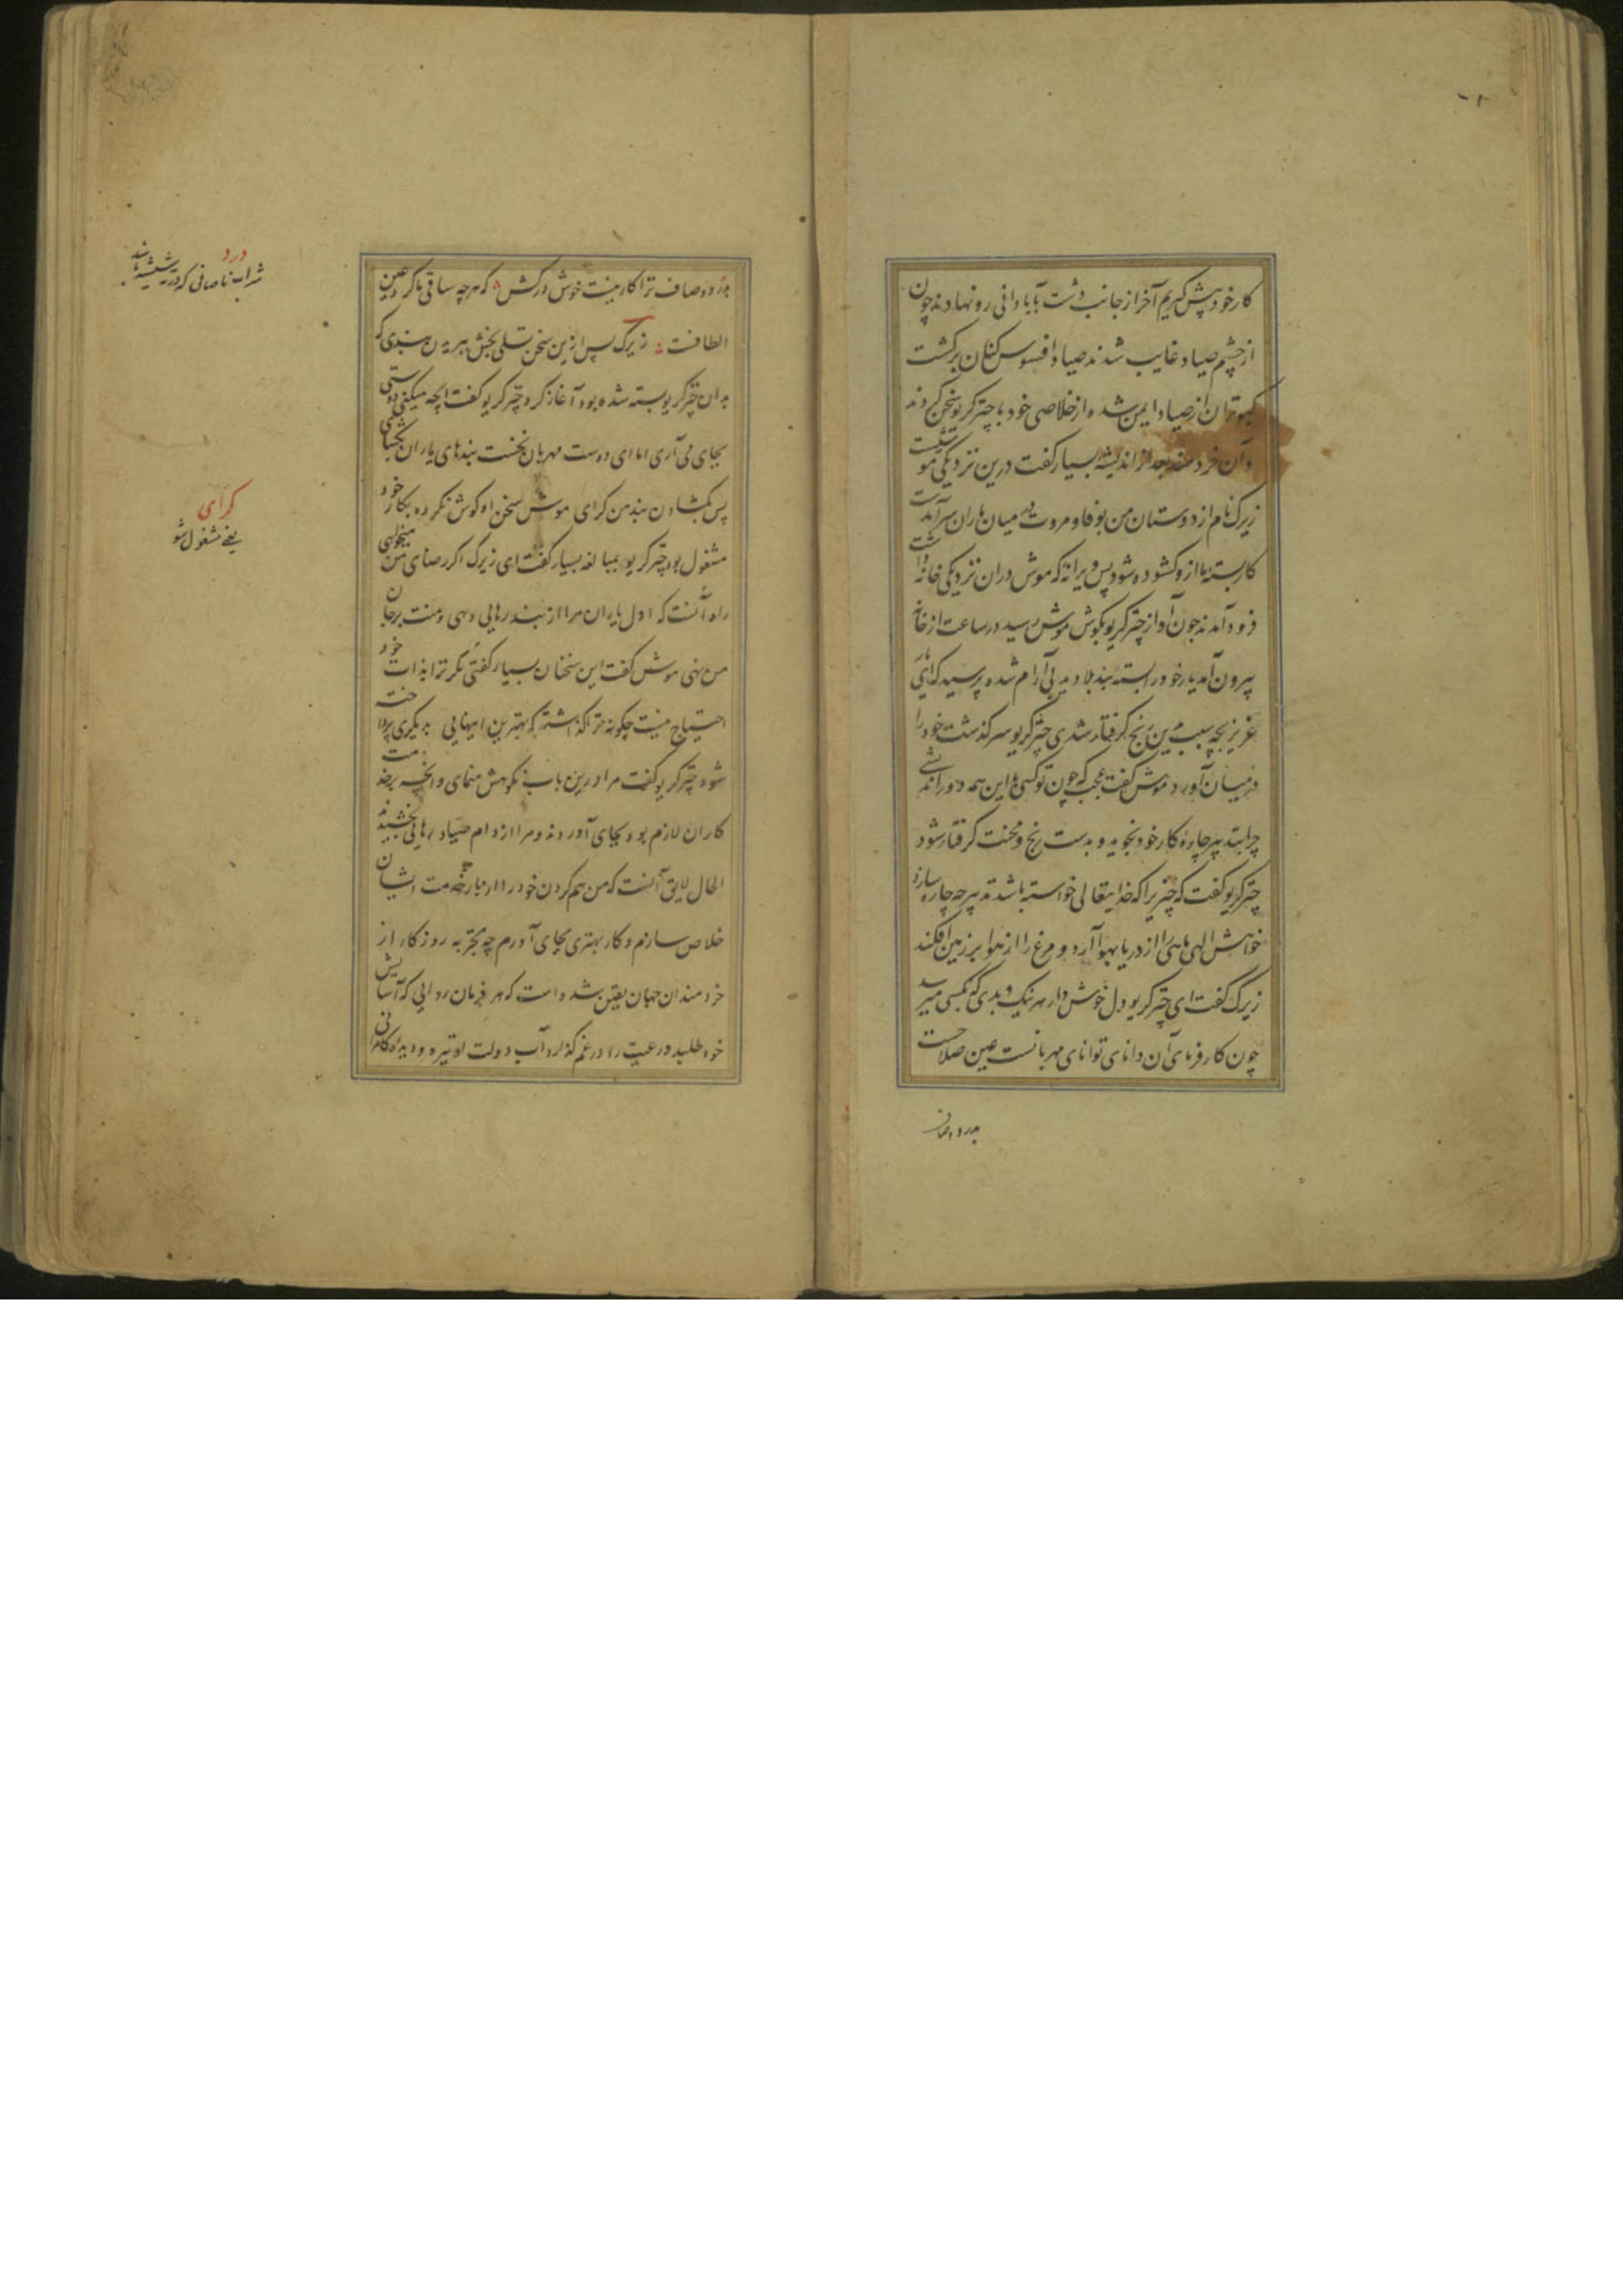 کار خود پیش گیریم آخر از جانب دشت بآبادانی رو نهادند چون
از چشم صیاد غایب شدند صیاد افسوس کنان برگشت
کبوتران از صیاد ایمن شده از خلاصی خود با چترگریو سخن کردند
و آن خردمند بعد از اندیشه بسیار گفت درین نزدیکی موشیست
زیرک نام از دوستان من بوفا و مروت در میان یاران سرآمدست
کار بسته ما ازو گشوده شود پس ویرانه که موش دران نزدیکی خانه داشت
فرود آمدند چون آواز چترگریو بگوش موش رسید در ساعت از خانه
بیرون آمد یار خود را بسته بند بلا دید بی آرام شده پرسید که ای یار
عزیز بچه سبب بدین رنج گرفتار شدی چترگریو سرگذشت خود را
در میان آورد موش گفت عجب که چون تو کسی با این همه دوراندیشی
چرا بتدبیر چاره کار خود نجوید و بدست رنج و محنت گرفتار شود
چترگریو گفت که چیزیرا که خدایتعالی خواسته باشد تدبیر چه چاره سازد
خواهش الهی ماهی را از دریا بهوا آرد و مرغ را از هوا بر زمین افکند
زیرک گفت ای چترگریو دل خوش دار هر نیک و بدی که بکسی میرسد
چون کارفرمای آن دانای توانای مهربانست عین صلاحست
بدرد و صاف
بدرد و صاف ترا کار نیست خوش درکش که هرچه ساقی ما کرد عین
الطافست زیرک پس ازین سخن تسلی بخش ببریدن بندی که
بدان چترگریو بسته شده بود آغاز کرد چترگریو گفت اچه میکنی دوستی
بجای می آری اما ای دوست مهربان نخست بندهای یاران بگشای
پس بگشادن بند من گرای موش سخن او گوش نکرده بکار خود
مشغول بود چترگریو بمبالغه بسیار گفت ای زیرک اگر رضای من میخواهی
راه آنست که اول یاران مرا از بند رهایی دهی و منت بر جان
من نهی موش گفت این سخنان بسیار گفتی مگر ترا بذات خود
احتیاج نیست چگونه ترا گذاشته که بهترین اینهایی بدیگری پرداخته
شود چترگریو گفت مرا درین باب نکوهش منمای و آنچه بر خدمت
کاران لازم بود بجای آوردند و مرا از دام صیاد رهایی بخشیدند
الحال لایق آنست که من هم گردن خود را از بار خدمت ایشان
خلاص سازم و کار بهتری بجای آورم چه بتجربه روزگار از
خردمندان جهان یقین شده است که هر فرمان روایی که آسایش
خود طلبد و رعیت را در غم گذارد آب دولت او تیره و دیده کامرانی
درد
شراب ناصافی که در ته شیشه باشد
گرای
یعنی مشغول شو